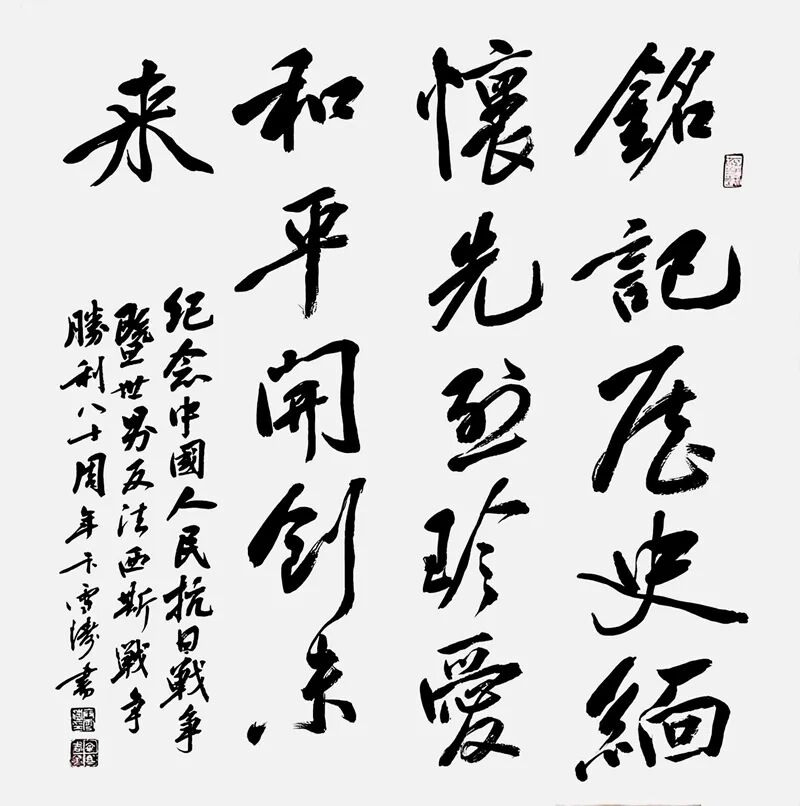 銘記歷史緬
懷先烈珍愛
和平開創未
来
纪念中國人民抗日戰争
暨世界反法西斯戰争
勝利八十周年卞雪濤書